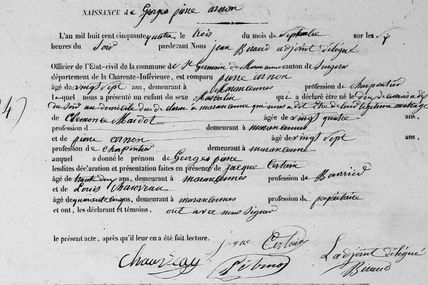 NAISSANCE de Georges pierre ornon
L'an mil huit cent cinquante quatre le trois du mois de Septembre sur les
heures du Soir pardevant Nous jean Beraud adjoint délégué
Officier de l'Etat-civil de la commune de St Germain de Marencennes canton de Surgères
département de la Charente-Inférieure, est comparu pierre ornon
âgé de vingt sept ans, demeurant à Marencennes profession de charpentier
lequel nous a présenté un enfant du sexe Masculin que a déclaré être né le
du Soir au domicile du déclarant à marencennes que
de Clemence Maidot âgée de vingt quatre ans,
profession d demeurant à marencennes
et de pierre ornon âgé de vingt sept ans,
profession de charpentier demeurant à marencennes
auquel a donné le prénom de Georges pierre
lesdites déclaration et présentation faites en présence de jacque Certain
âgé de trente deux ans, demeurant à marencennes profession de
et de Louis Chauveau
âgé de ans, demeurant à marencennes profession de propriétaire
et ont, les déclarant et témoins, ont avec nous signer
le présent acte, après qu'il leur en a été fait lecture.
Chauveau Certain L'adjoint délégué
Beraud